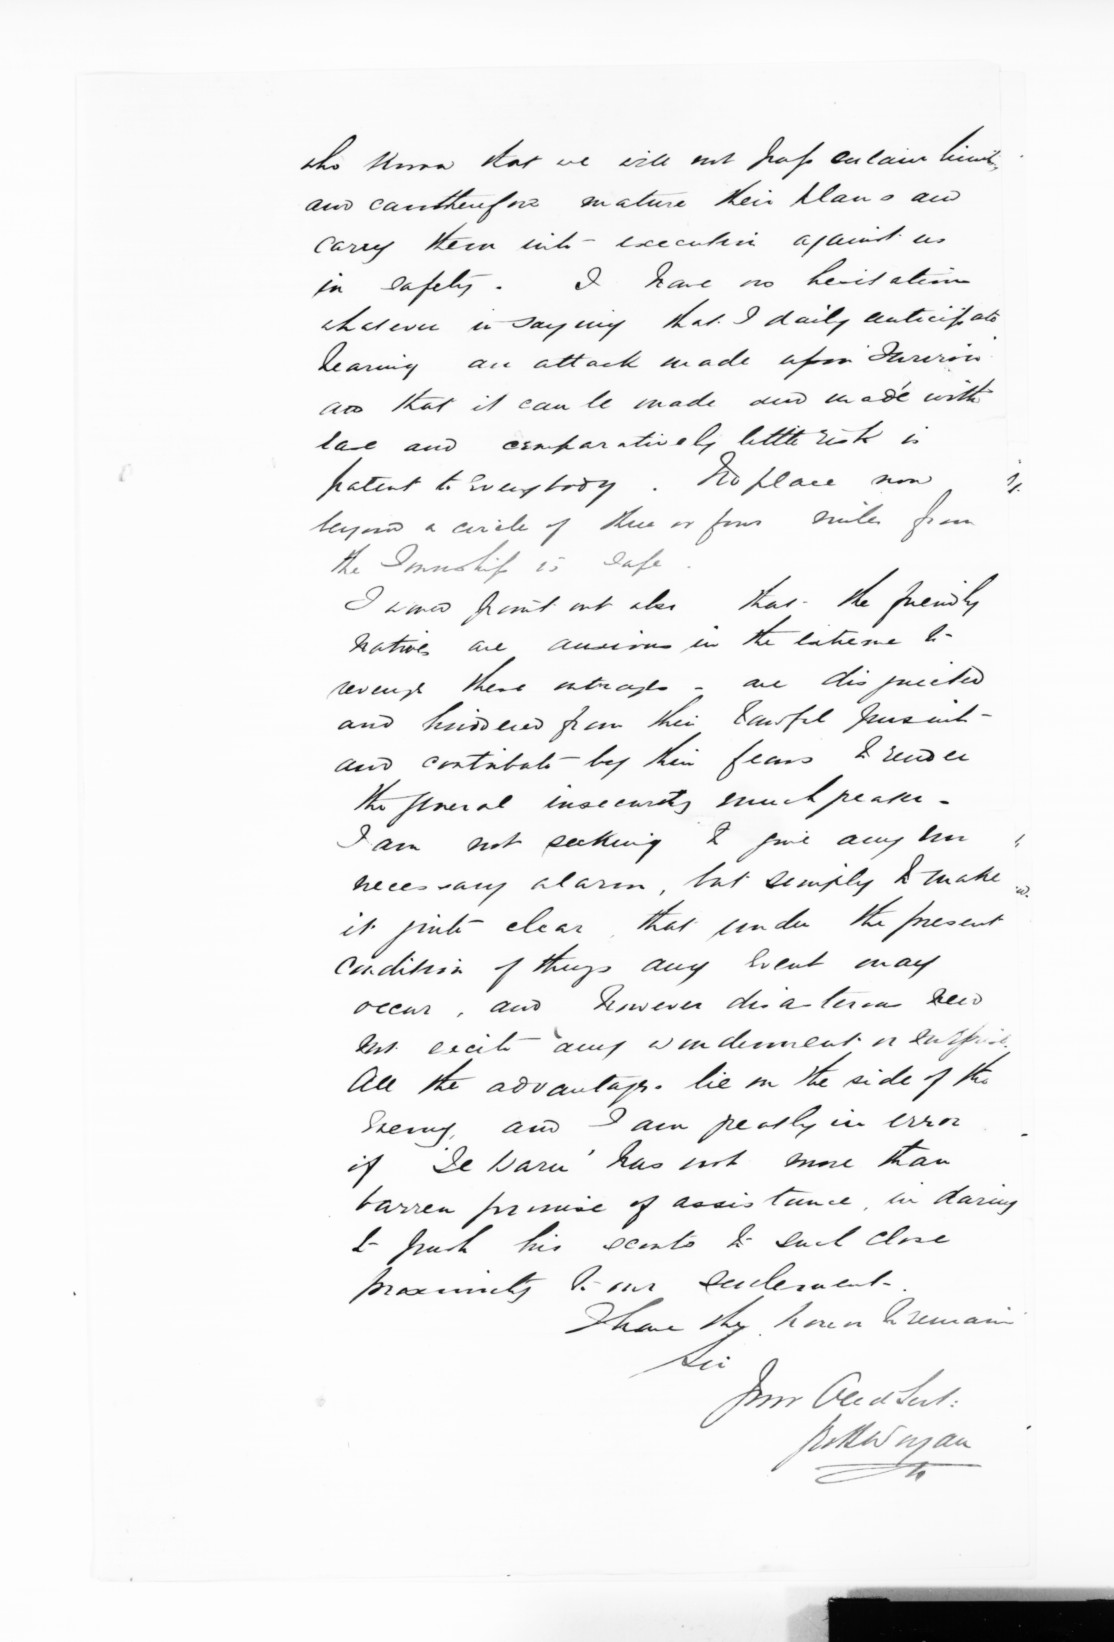 who know that we will not pass certain limits,
and can therefore mature their plans and
carry them into execution against us
in safety. I have no hesitation
whatever in saying that I daily anticipate
hearing an attack made upon
and that it can be made and made with
ease and comparatively little risk is
patent to Everybody. No place now
beyond a circle of three or four miles from
the Township is safe.
I would point out also that the friendly
Natives are anxious in the extreme to
revenge these outrages - are disquieted
and hindered from their lawful pursuits
and contribute by their fears to render
the general insecurity much greater.
I am not seeking to give any un
necessary alarm, but simply to make
it quite clear, that under the present
condition of things any Event may
occur, and however disastrous need
not excite any wonderment or surprise.
All the advantages lie on the side of the
Enemy, and I am greatly in error
if 'Te Waru' has not more than
barren promise of assistance, in daring
to push his scouts to such close
proximity to our settlement.
I have the honor to remain
Sir
Your Obed Servt: